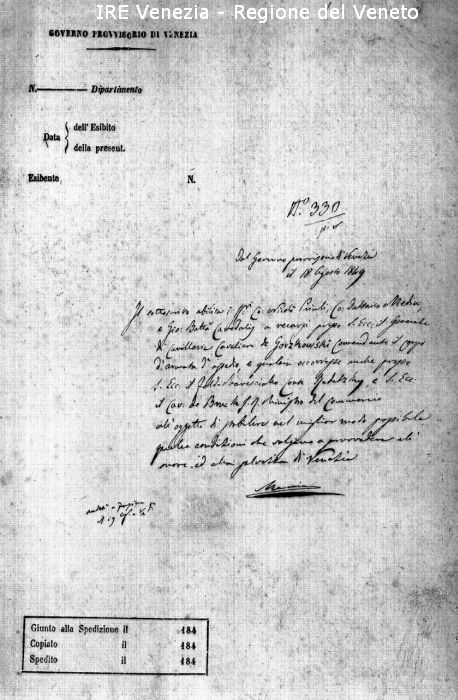 IRE Venezia - Regione del Veneto
GOVERNO PROVVISORIO DI VENEZIA
N. Dipartimento
Data { dell'Esibito
della present.
Esibente N.
N.º 330
Dal Governo provvisorio di Venezia
il 18 Agosto 1849
Il sottoscritto abilita i Co. Nicolò Priuli, Co. Dataico Medin,
e Gio. Batta a recarsi presso S. Ecc. il Generale
di Cavalleria Cavaliere de Gorzkowski Comandante il corpo
d'armata d'assedio, e qualora occorresse anche presso
S. Ecc. il Conte Radetzky, e S. Ecc.
il Cav. de Bruck Ministro del Commercio
all'oggetto di stabilire nel miglior modo possibile
quelle condizioni che valgano a provvedere all'
onore ed alla salvezza di Venezia
Manin
Giunto alla Spedizione il 184
Copiato il 184
Spedito il 184